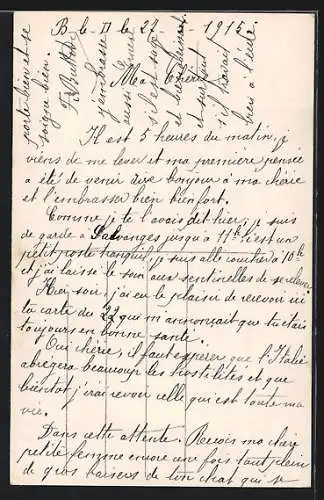 B-l-D le 27 - 1915
Ma Chérie
Il est 5 heures du matin, je
viens de me lever et ma première pensée
a été de venir dire bonjour à ma chérie
et l'embrasser bien bien fort.
Comme je te l'avais dit hier, je suis
de garde à Salvanges jusqu'à 11h c'est un
petit poste tranquil, je suis allé coucher à 10h
et j'ai laissé le soin aux sentinelles de se relever.
Hier soir, j'ai eu le plaisir de recevoir
ta carte du 22 qui m'annonçait que tu étais
toujours en bonne santé.
Oui chérie, il faut espérer que l'Italie
abrégera beaucoup les hostilités et que
bientôt j'irai revoir celle qui est toute ma
vie.
Dans cette attente. Reçois ma chère
petite femme encore une fois tout plein
de gros baisers de ton chat qui se
porte bien et se
soigne bien.
j'embrasse
aussi
et surtout